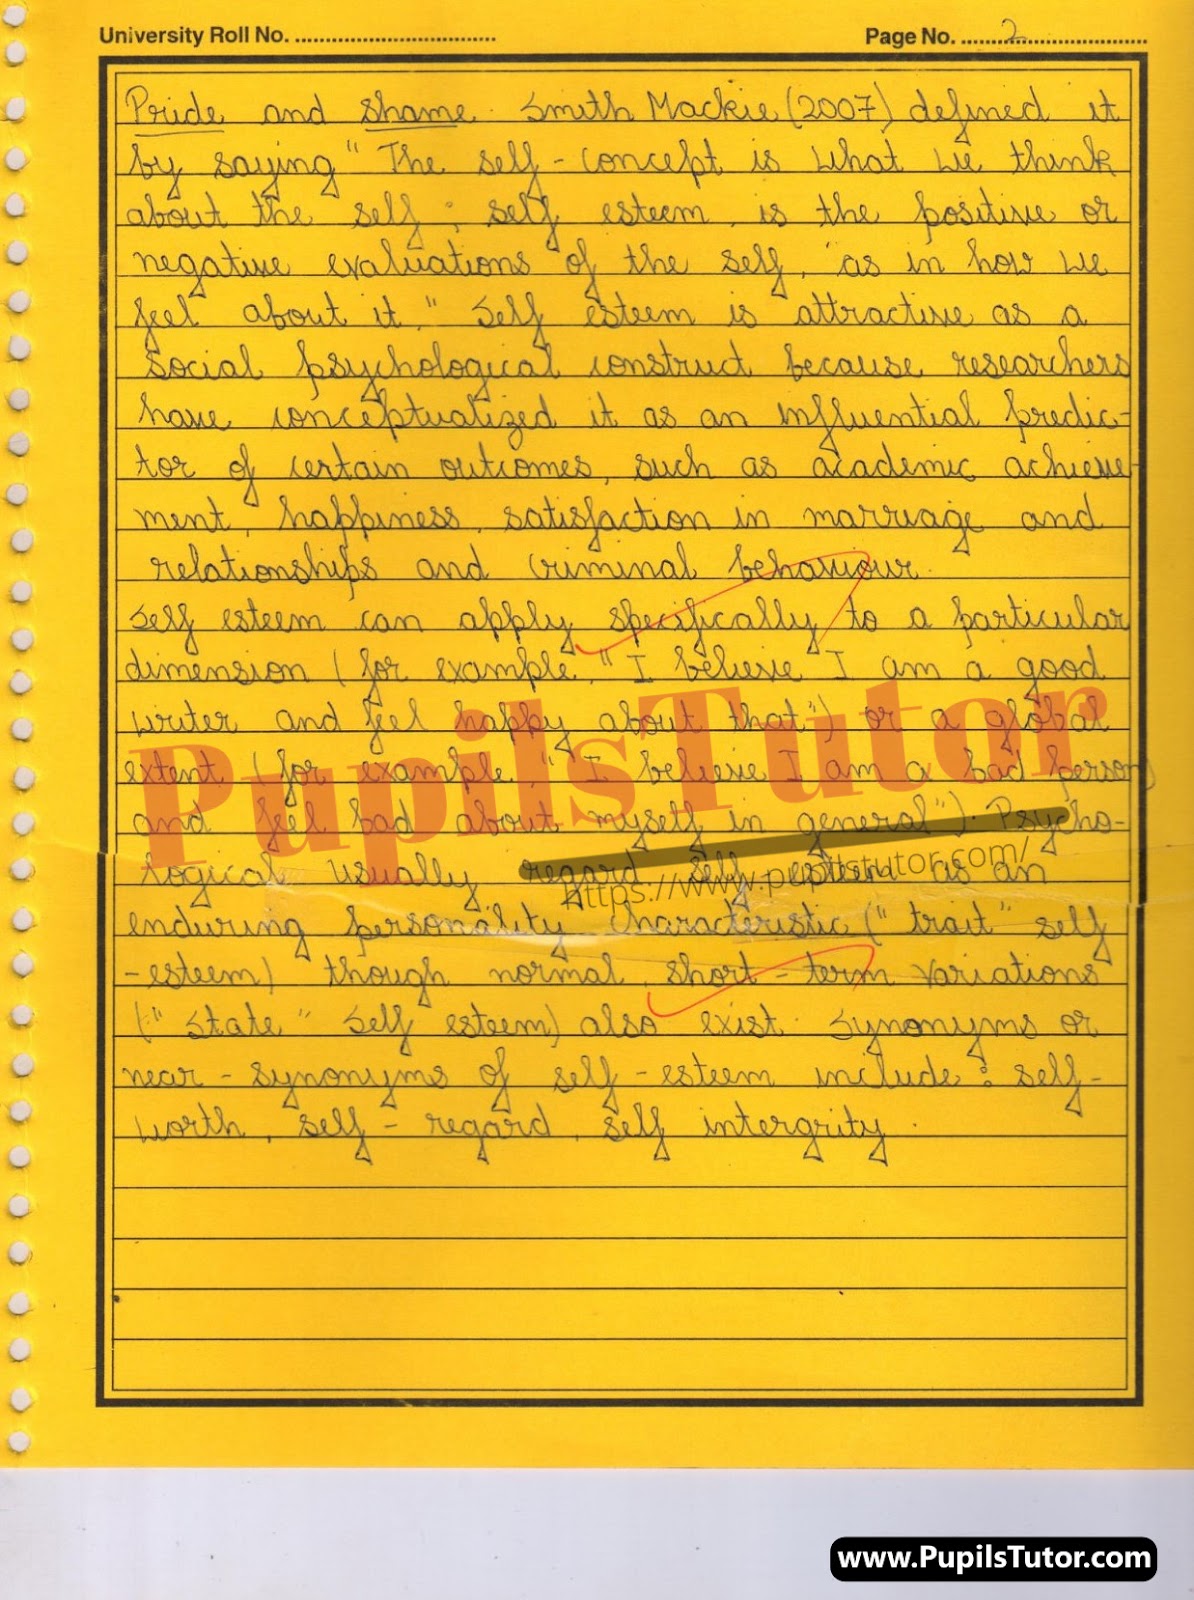 University Roll No. ................................
Page No. ......2......................
Pride and shame. Smith Mackie (2007) defined it
by saying " The self - concept is what we think
about the self ; self esteem, is the positive or
negative evaluations of the self, as in how we
feel about it." Self esteem is attractive as a
social psychological construct because researchers
have conceptualized it as an influential predic-
tor of certain outcomes, such as academic achieve-
ment, happiness, satisfaction in marriage and
relationships and criminal behaviour.
Self esteem can apply specifically to a particular
dimension ( for example, " I believe I am a good
writer and feel happy about that") or a global
extent ( for example, " I believe I am a bad person,
and feel bad about myself in general"). Psycho-
logical usually regard self esteem as an
enduring personality characteristic (" trait " self
- esteem) though normal, short - term variations
(" State " Self esteem) also exist. Synonyms or
near - synonyms of self - esteem include : self-
worth, self - regard, self intergrity.
PupilsTutor
https://www.pupilstutor.com/
www.PupilsTutor.com